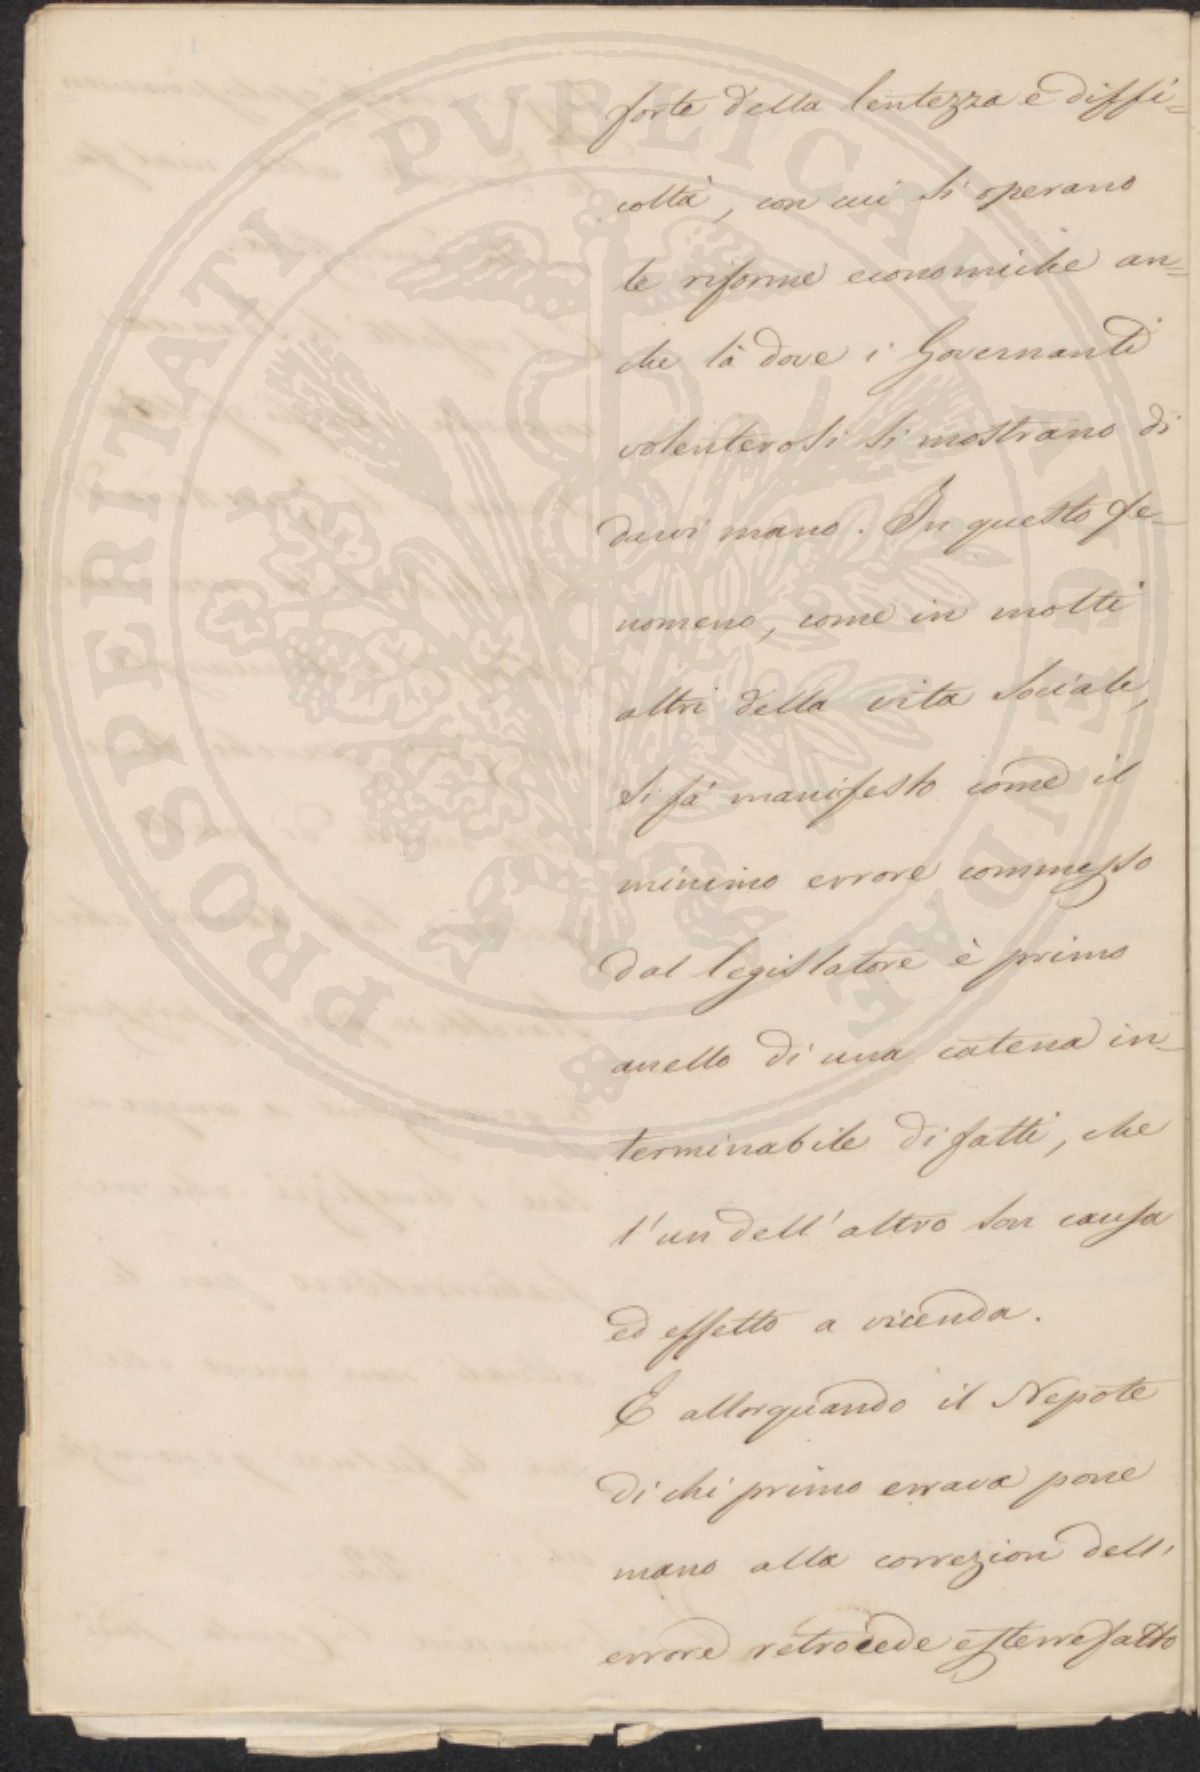 forte della lentezza e diffi=
coltà, con cui si operano
le riforme economiche an=
che là dove i Governanti
volenterosi si mostrano di
darvi mano. In questo fe=
nomeno, come in molti
altri della vita sociale,
si fà manifesto come il
minimo errore commesso
dal legislatore è primo
anello di una catena in=
terminabile di fatti, che
l'un dell'altro son causa
ed effetto a vicenda.
E allorquando il Nepote
di chi primo errava pone
mano alla correzion dell'
errore retrocede esterrefatto
PROSPERITATI PVBLICAE AVGENDAE